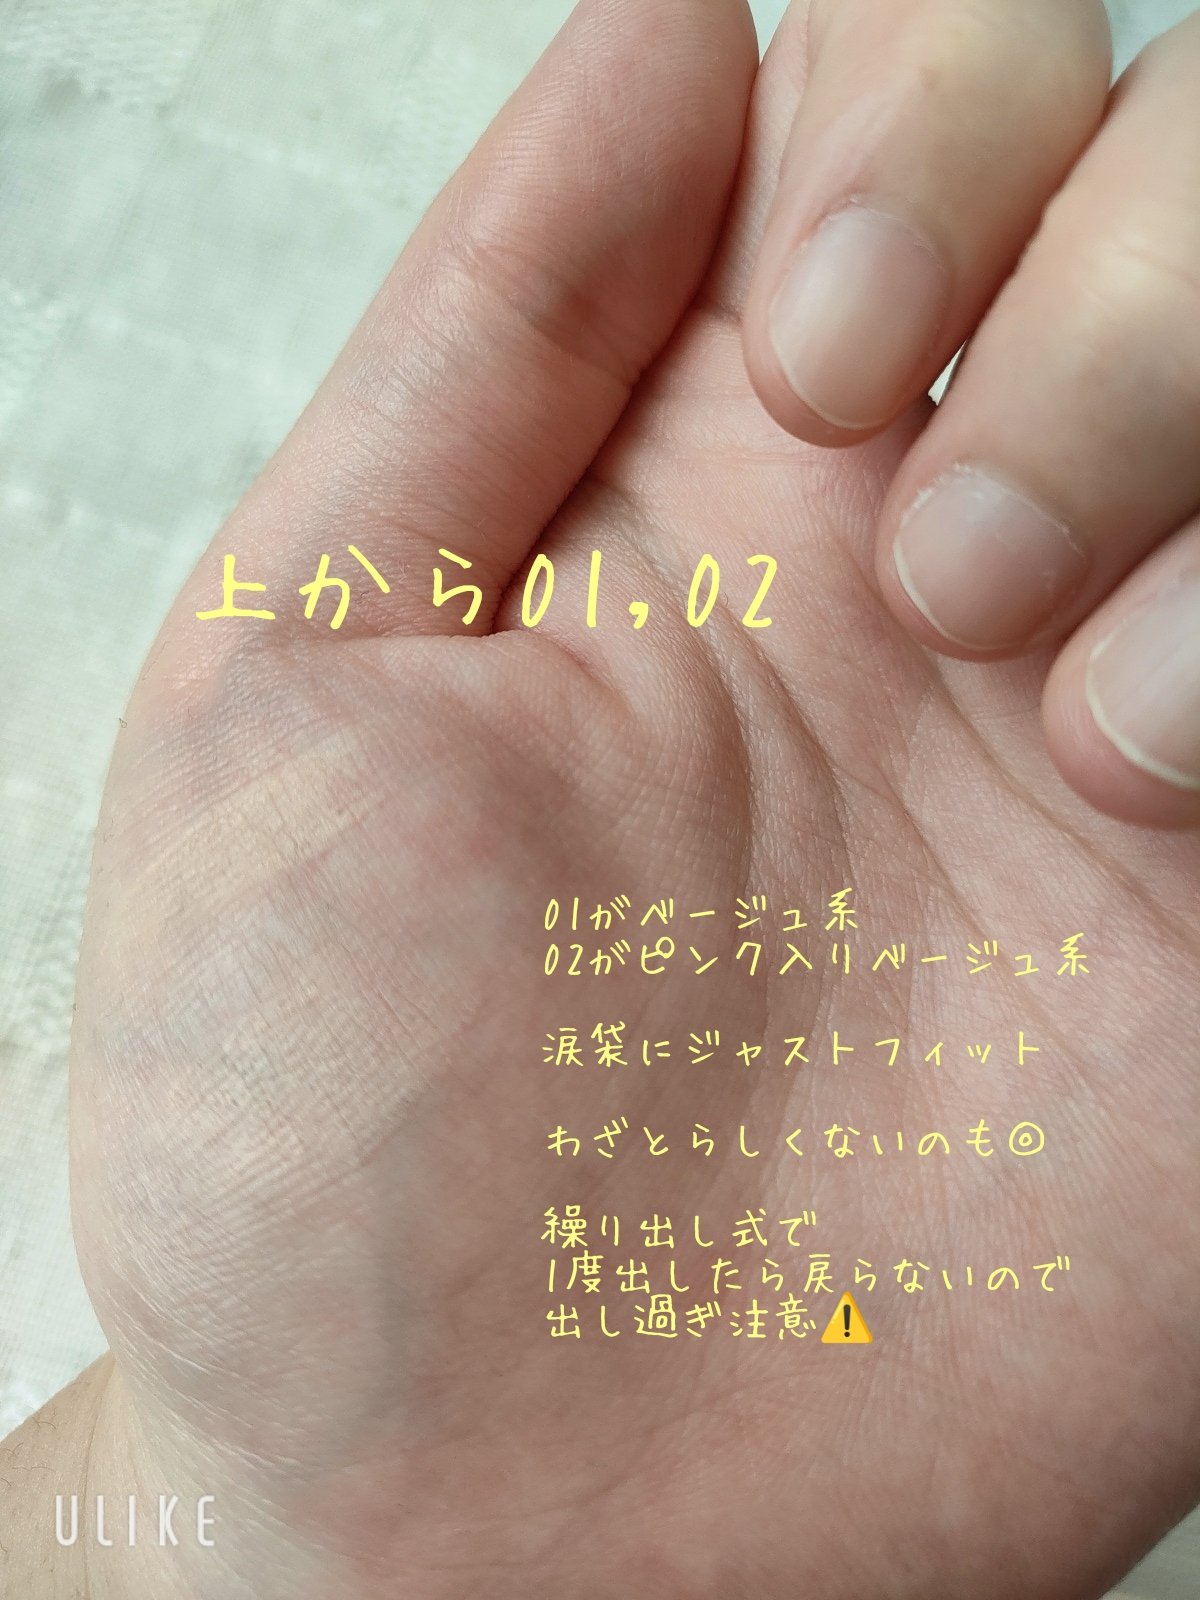 上から01,02
01がベージュ系
02がピンク入りベージュ系
涙袋にジャストフィット
わざとらしくないのも◎
繰り出し式で
1度出したら戻らないので
出し過ぎ注意⚠️
ULIKE